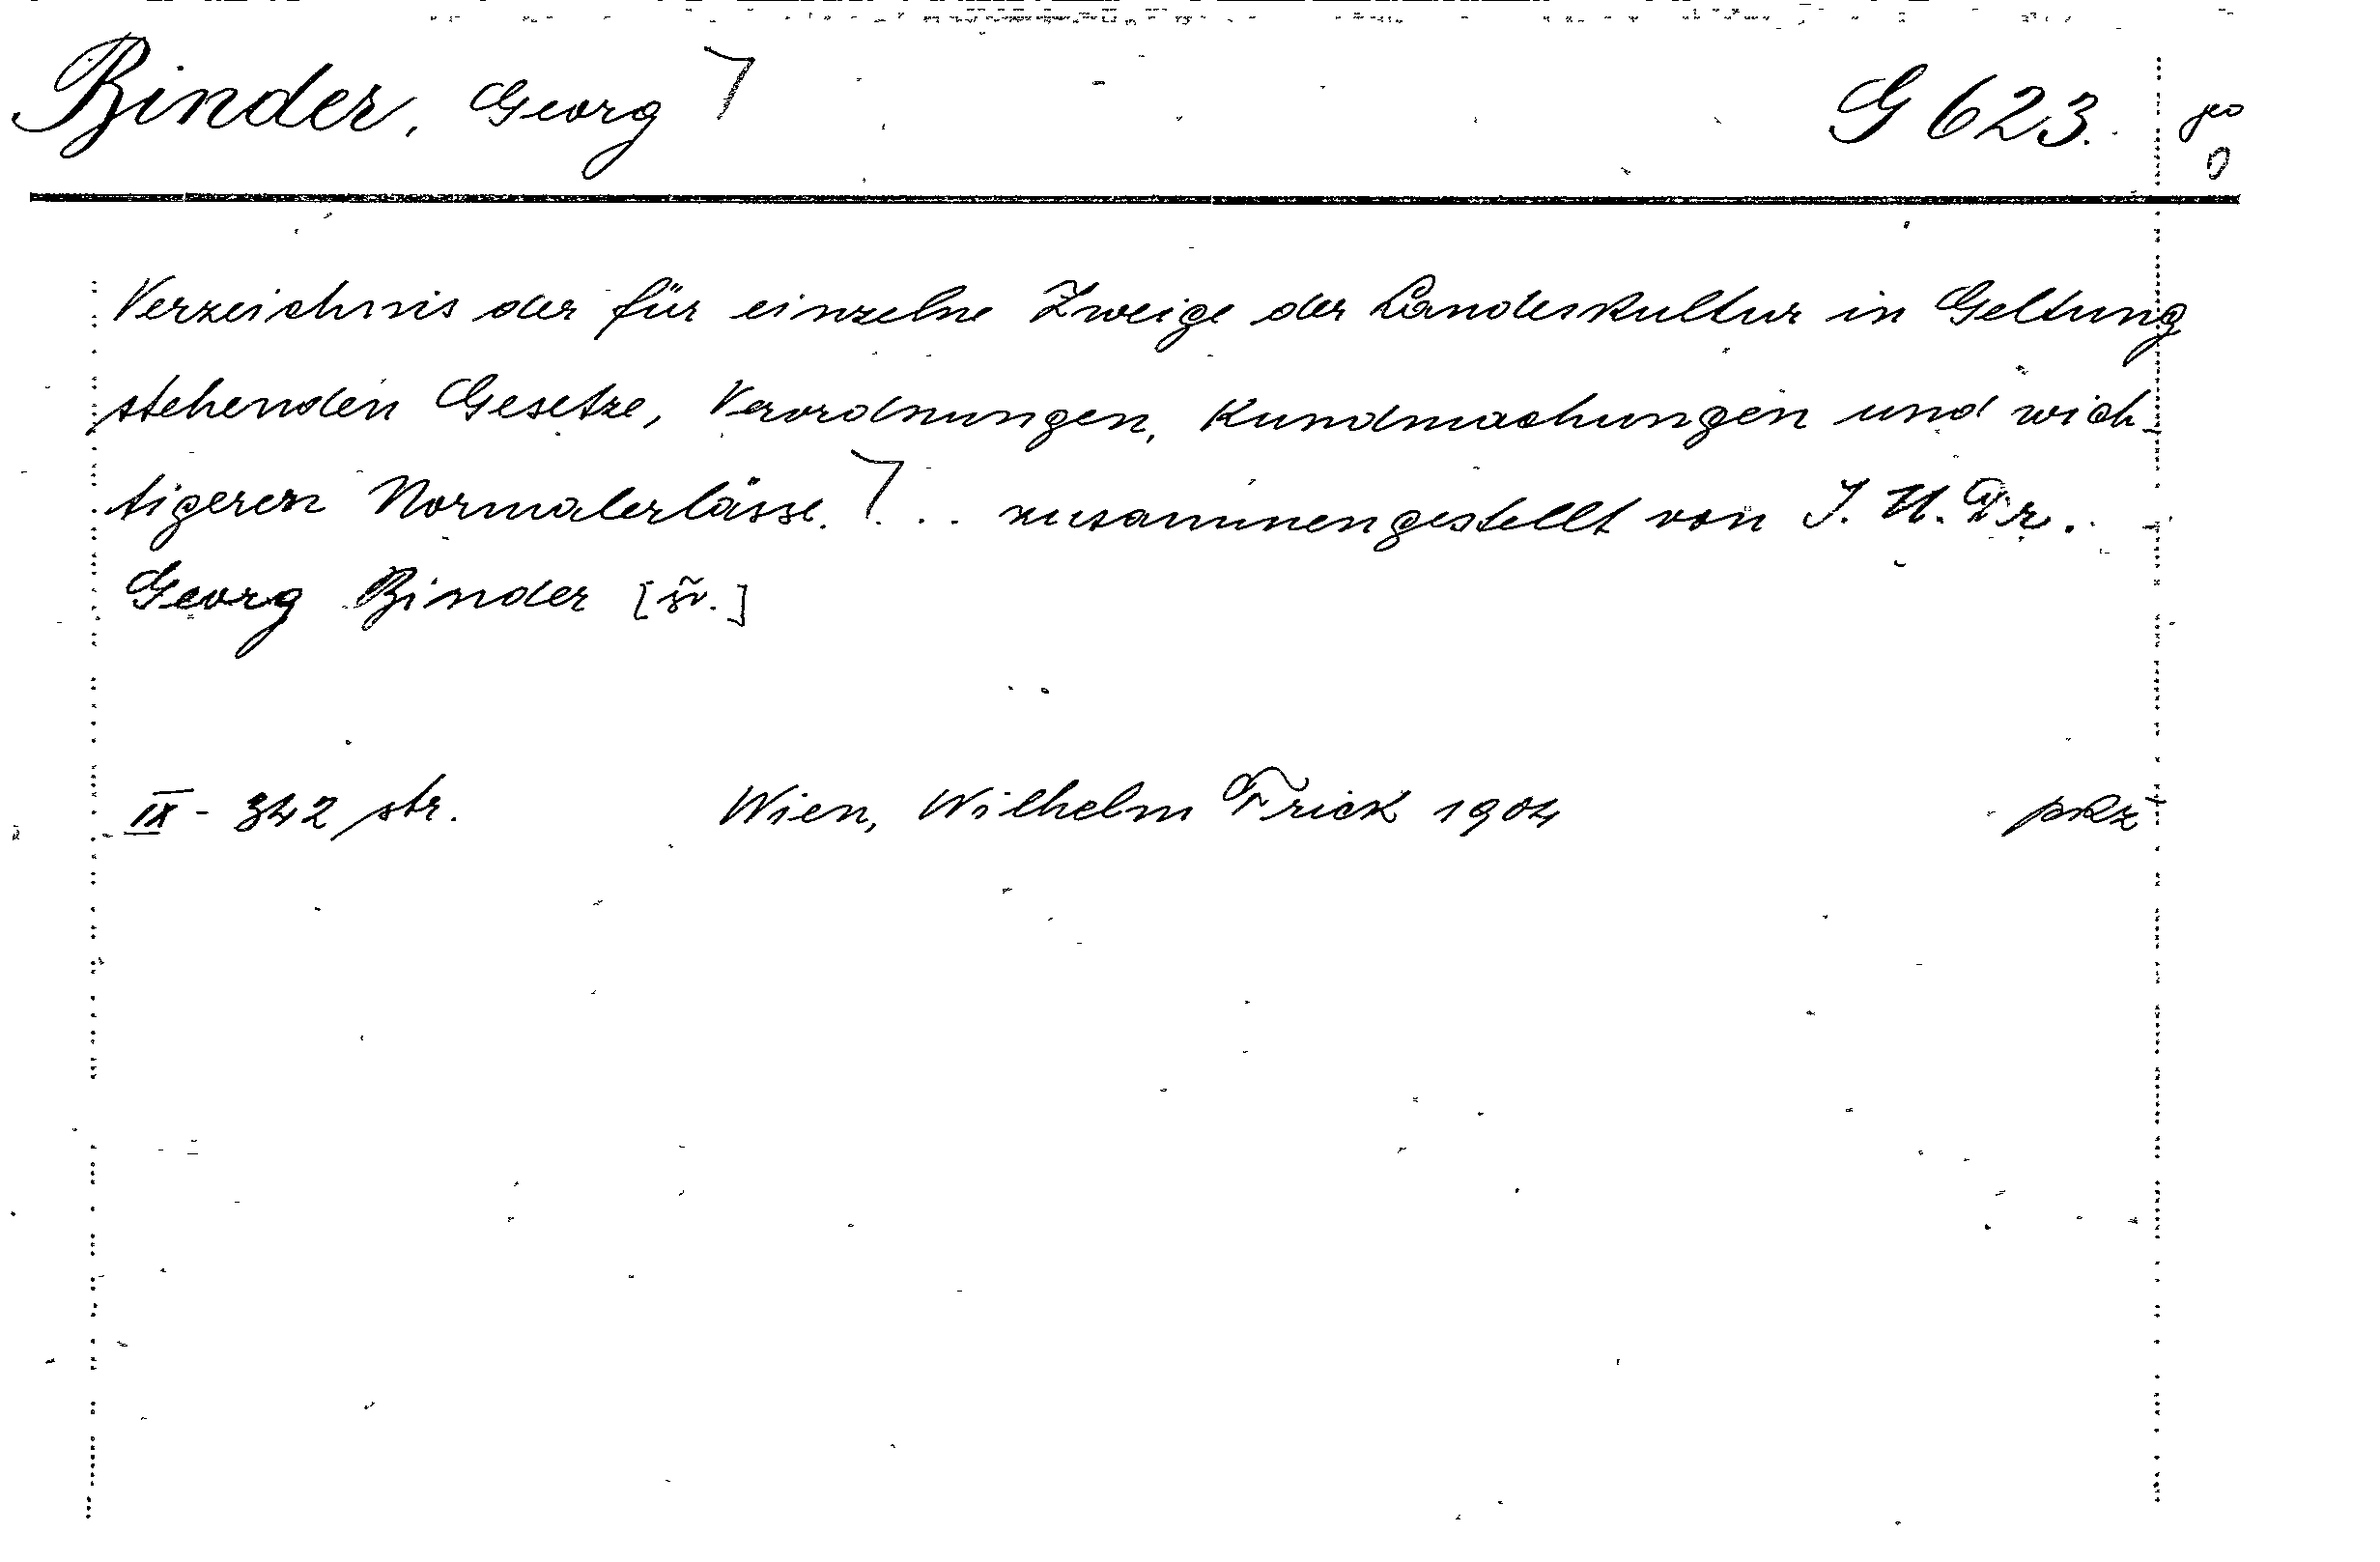 Binder, Georg G 623.
Verzeichnis der für einzelne Zweige der Landeskultur in Geltung
stehenden Gesetze, Verordnungen, Kundmachungen und wich-
tigeren Normalerlässe. ... zusammengestellt von J. U. Dr.
Georg Binder
IX - 342 str. Wien, Wilhelm Frick 1904 pRz